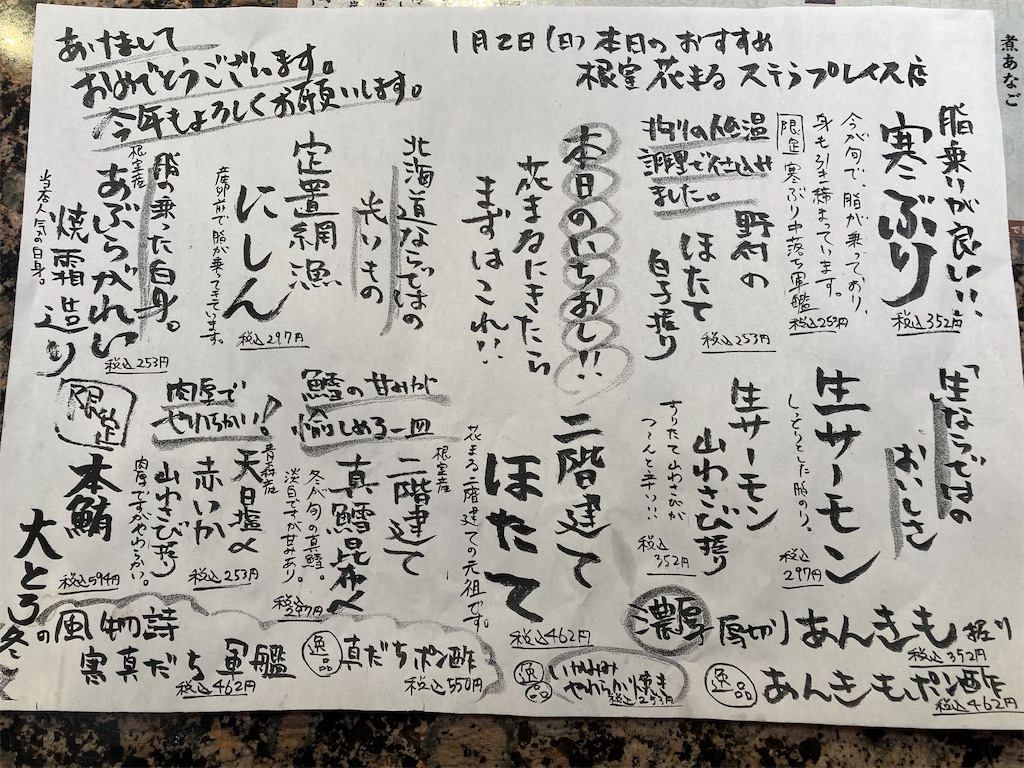 あけまして
おめでとうございます。
今年もよろしくお願いします。
1月2日(日)本日のおすすめ
根室花まるステラプレイス店
煮あなご
脂乗りが良い!!
寒ぶり
税込352円
今が旬で、脂が乗っており、
身も引き締まっています。
限定 寒ぶり中落ち軍艦
税込253円
野付の
ほたて
白子握り
税込253円
本日のいちおし!!
花まるにきたら
まずはこれ!!
二階建て
ほたて
花まる二階建ての元祖です。
税込462円
北海道ならではの
光りもの
定置網漁
にしん
産卵前で脂が乗てきています。
税込297円
脂の乗った白身。
根室産
あぶらがれい
焼霜造り
当店人気の白身。
税込253円
「生」ならではの
おいしさ
生サーモン
しっとりとした脂のり。
税込297円
生サーモン
山わさび握り
すりたて山わさびが
つ〜んと辛い!!!
税込352円
鱈の甘みが
愉しめる一皿
根室産
二階建て
真鱈昆布〆
冬が旬の真鱈。
淡白ですが甘みあり。
税込297円
肉厚で
やわらかい!
青森産
天日塩〆
赤いか
山わさび握り
肉厚ですがやわらかい。
税込253円
限定
本鮪
大とろ
税込594円
冬の風物詩
寒真だち軍艦
税込462円
逸品 真だちポン酢
税込550円
逸品
やわらか焼き
税込253円
濃厚 厚切りあんきも握り
税込352円
逸品 あんきもポン酢
税込462円